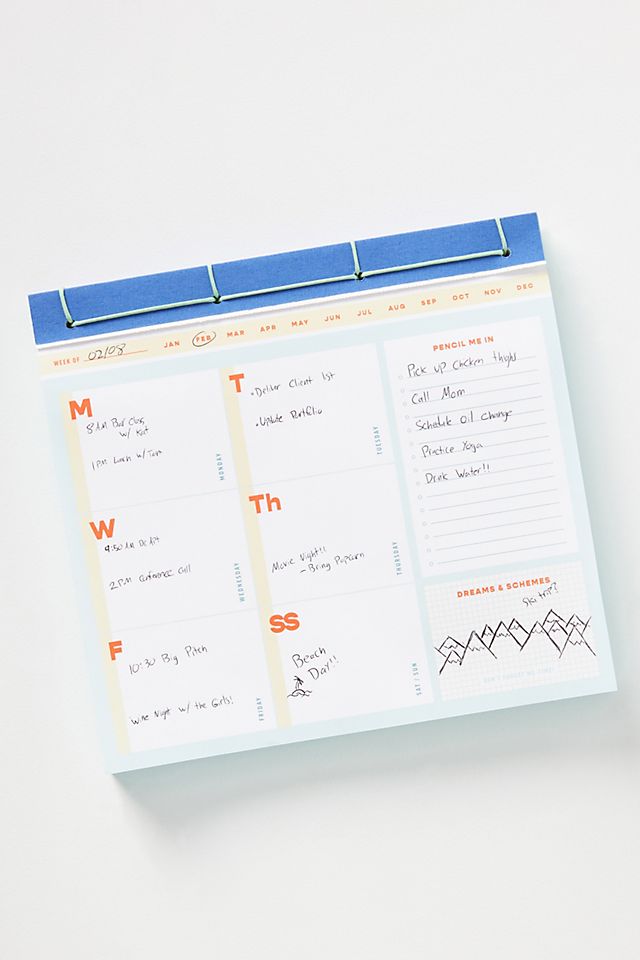 WEEK OF 02/08 JAN FEB MAR APR MAY JUN JUL AUG SEP OCT NOV DEC
M
8 AM Bar Class
w/ Kat
1 PM Lunch w/ Tam
MONDAY
T
• Deliver Client list
• Update Portfolio
TUESDAY
W
9:50 AM Dr Apt
2 PM Conference Call
WEDNESDAY
Th
Movie Night!!
- Bring Popcorn
THURSDAY
F
10:30 Big Pitch
Wine Night w/ the Girls!
FRIDAY
SS
Beach
Day!!
SAT / SUN
PENCIL ME IN
Pick up chicken thighs
Call Mom
Schedule oil change
Practice Yoga
Drink Water!!
DREAMS & SCHEMES
Ski trip?
DON'T FORGET ME TIME!